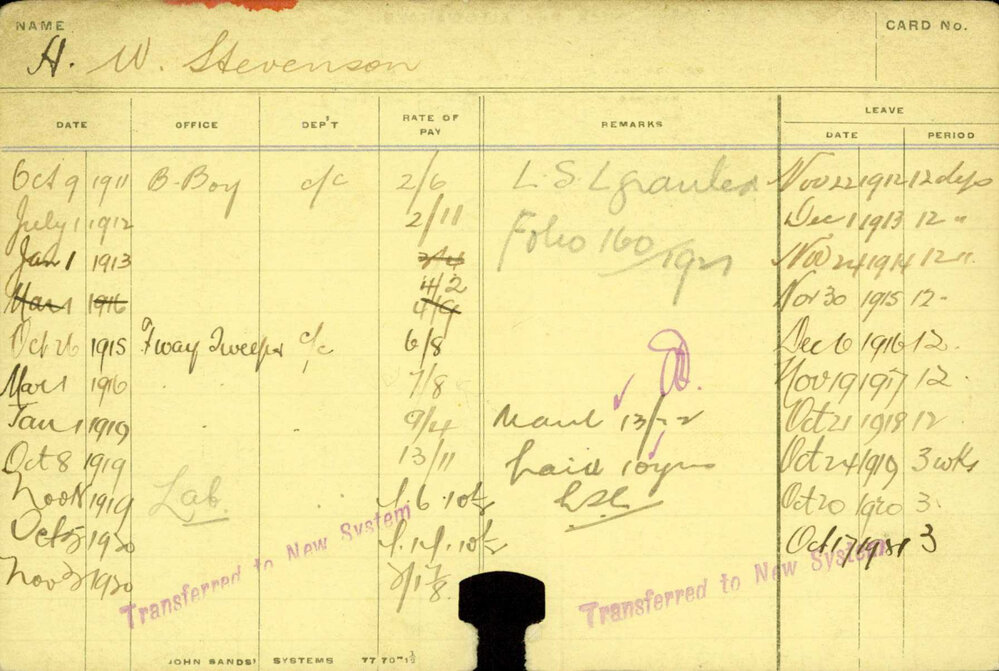 NAME
H. W. Stevenson
CARD No.
DATE OFFICE DEP'T RATE OF PAY REMARKS LEAVE
DATE PERIOD
Oct 9 1911 B-Boy c/c 2/6 L.S.L granted Nov 22 1912 12 dys
July 1 1912 2/11 Dec 1 1913 12 "
Folio 160/1921
Jan 1 1913 Nov 24 1914 12 "
4/2
Mar 1 1916 4/9 Nov 30 1915 12 -
Oct 26 1915 F'way Sweeper c/c 6/8 Dec 6 1916 12.
Mar 1 1916 " " 7/8 Nov 19 1917 12.
Jan 1 1919 " " 9/4 March 13/22 Oct 21 1918 12
Oct 8 1919 13/11 paid 10 yrs Oct 24 1919 3 wks
Nov 1919 Lab. LSL Oct 20 1920 3.
Oct 1920 Oct 17 1921 3
Nov 1920
Transferred to New System
Transferred to New System
JOHN SANDS' SYSTEMS 77 70